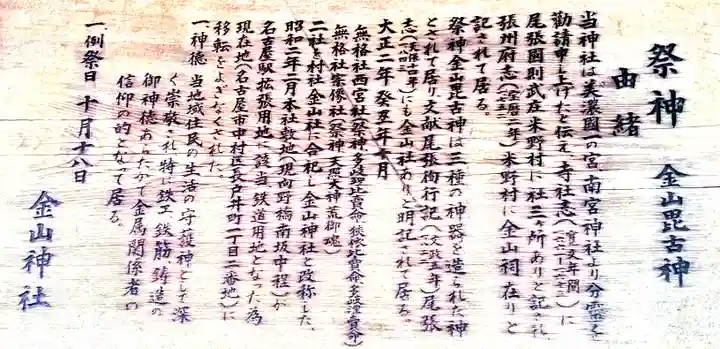 祭神　金山毘古神
由緒
当神社は美濃國一の宮、南宮神社より分霊を
勧請申し上げたと伝え、寺社志(寛文年間)に
尾張國則武庄米野村に社三ヶ所ありと記され、
張州府志(宝暦二年)米野村に金山祠在りと
記されて居る。
祭神金山毘古神は三種の神器を造られた神
とされて居り文献尾張徇行記(文政五年)尾張
志(天保十四年)にも金山社ありと明記されて居る。
大正二年 癸丑年十月
無格社西宮社(祭神 多岐理比賣命 狭依比賣命 多岐津比賣命)
無格社崇像社(祭神 天照大神荒御魂)
二社を村社金山社に合祀し金山神社と改称した。
昭和二年二月本社敷地(現向野橋南坂中程)が
名古屋駅拡張用地に該当、鉄道用地となった為
現在地(名古屋市中村区長戸井町二丁目二番地)に
移転をよぎなくされた。
一、神徳 当地域住民の生活の守護神として深
く崇敬され特に鉄工、鉄筋、鋳造の
御神徳あらたかで金属関係者の
信仰の的となって居る。
一、例祭日 十月十八日
金山神社